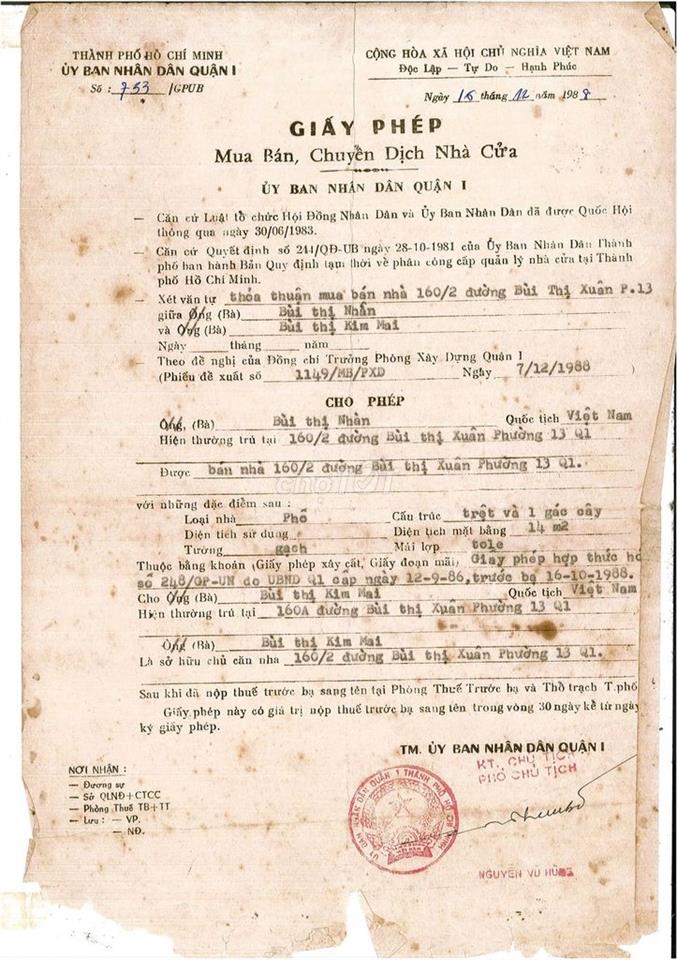 THÀNH PHỐ HỒ CHÍ MINH
ỦY BAN NHÂN DÂN QUẬN I
Số : 753 /GPUB
CỘNG HÒA XÃ HỘI CHỦ NGHĨA VIỆT NAM
Độc Lập — Tự Do — Hạnh Phúc
Ngày 16 tháng 12 năm 1988
GIẤY PHÉP
Mua Bán, Chuyển Dịch Nhà Cửa
ỦY BAN NHÂN DÂN QUẬN I
— Căn cứ Luật tổ chức Hội Đồng Nhân Dân và Ủy Ban Nhân Dân đã được Quốc Hội
thông qua ngày 30/06/1983.
— Căn cứ Quyết định số 244/QĐ-UB ngày 28-10-1981 của Ủy Ban Nhân Dân Thành
phố ban hành Bản Quy định tạm thời về phân công cấp quản lý nhà cửa tại Thành
phố Hồ Chí Minh.
— Xét văn tự thỏa thuận mua bán nhà 160/2 đường Bùi Thị Xuân P.13
giữa Ông (Bà) Bùi thị Nhần
và Ông (Bà) Bùi thị Kim Mai
Ngày tháng năm
— Theo đề nghị của Đồng chí Trưởng Phòng Xây Dựng Quận I
(Phiếu đề xuất số 1149/MB/PXD Ngày 7/12/1988 )
CHO PHÉP
Ông, (Bà) Bùi thị Nhàn Quốc tịch Việt Nam
Hiện thường trú tại 160/2 đường Bùi thị Xuân Phường 13 Q1
Được bán nhà 160/2 đường Bùi thị Xuân Phường 13 Q1.
chợTỐT
với những đặc điểm sau :
Loại nhà Phố Cấu trúc trệt và 1 gác cây
Diện tích sử dung Diện tích mặt bằng 14 m2
Tường gạch Mái lợp tole
Thuộc bằng khoán (Giấy phép xây cất, Giấy đoạn mãi) Giấy phép hợp thức hó
số 248/GP-UN do UBND Q1 cấp ngày 12-9-86,trước bạ 16-10-1988.
Cho Ông (Bà) Bùi thị Kim Mai Quốc tịch Việt Nam
Hiện thường trú tại 160A đường Bùi thị Xuân Phường 13 Q1
Ông (Bà) Bùi thị Kim Mai
Là sở hữu chủ căn nhà 160/2 đường Bùi thị Xuân Phường 13 Q1.
Sau khi đã nộp thuế trước bạ sang tên tại Phòng Thuế Trước bạ và Thổ trạch T.phố
Giấy phép này có giá trị nộp thuế trước bạ sang tên trong vòng 30 ngày kể từ ngày
ký giấy phép.
TM. ỦY BAN NHÂN DÂN QUẬN I
KT. CHỦ TỊCH
PHÓ CHỦ TỊCH
NƠI NHẬN :
— Đương sự
— Sở QLNĐ+CTCC
— Phòng Thuế TB+TT
— Lưu : — VP.
— NĐ.
ỦY BAN NHÂN DÂN QUẬN 1 THÀNH PHỐ HỒ CHÍ MINH
NGUYỄN VŨ